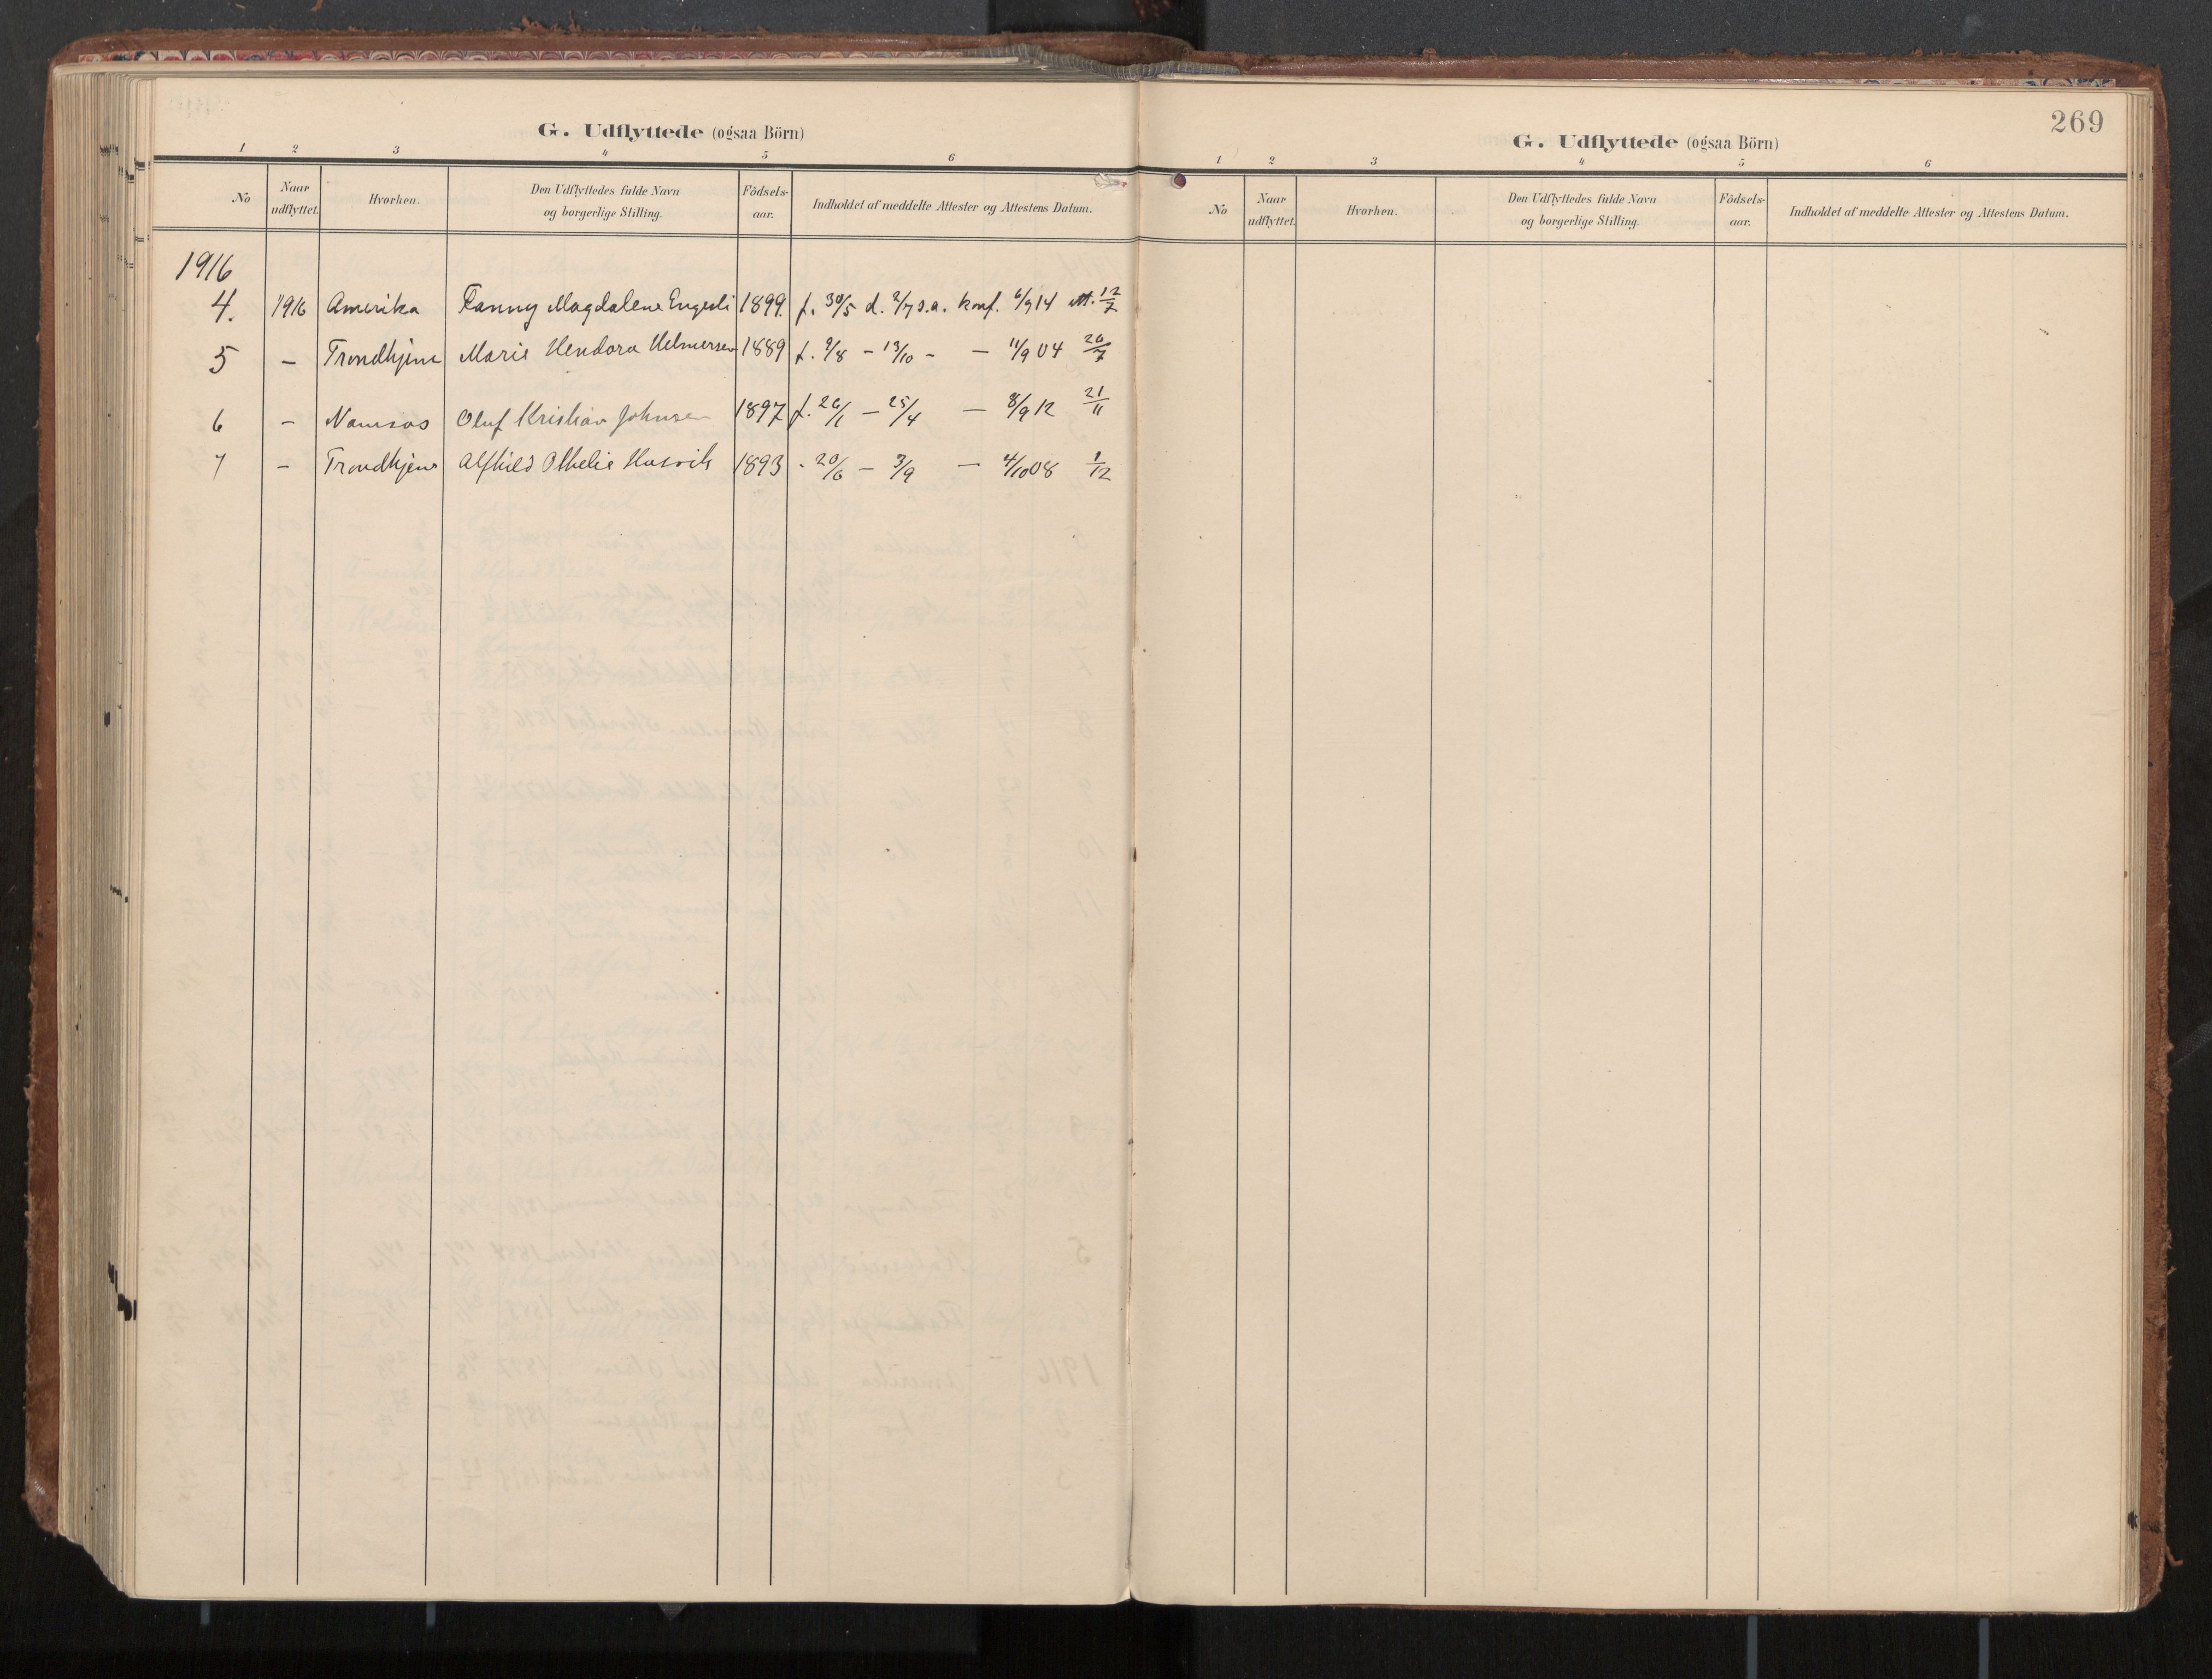 G. Udflyttede (ogsaa Börn)
1 2 3 4 5 6
No Naar udflyttet. Hvorhen. Den Udflyttedes fulde Navn og borgerlige Stilling. Födsels-aar. Indholdet af meddelte Attester og Attestens Datum.
1916
4. 1916 Amerika Fanny Magdalene 1899. f. 30/5 d. 2/7 s.a. konf. 6/9 14 att. 12/7
5 – Trondhjem Marie Hendora Helmersen 1889 f. 9/8 – 13/10 – – 11/9 04 26/7
6 – Namsos Oluf Kristian Johnsen 1897 f. 26/1 – 25/4 – 8/9 12 21/11
7 – Trondhjem Alfhild Othelie Husvik 1893 - 20/6 – 3/9 – 4/10 08 1/12
269
G. Udflyttede (ogsaa Börn)
1 2 3 4 5 6
No Naar udflyttet. Hvorhen. Den Udflyttedes fulde Navn og borgerlige Stilling. Födsels-aar. Indholdet af meddelte Attester og Attestens Datum.